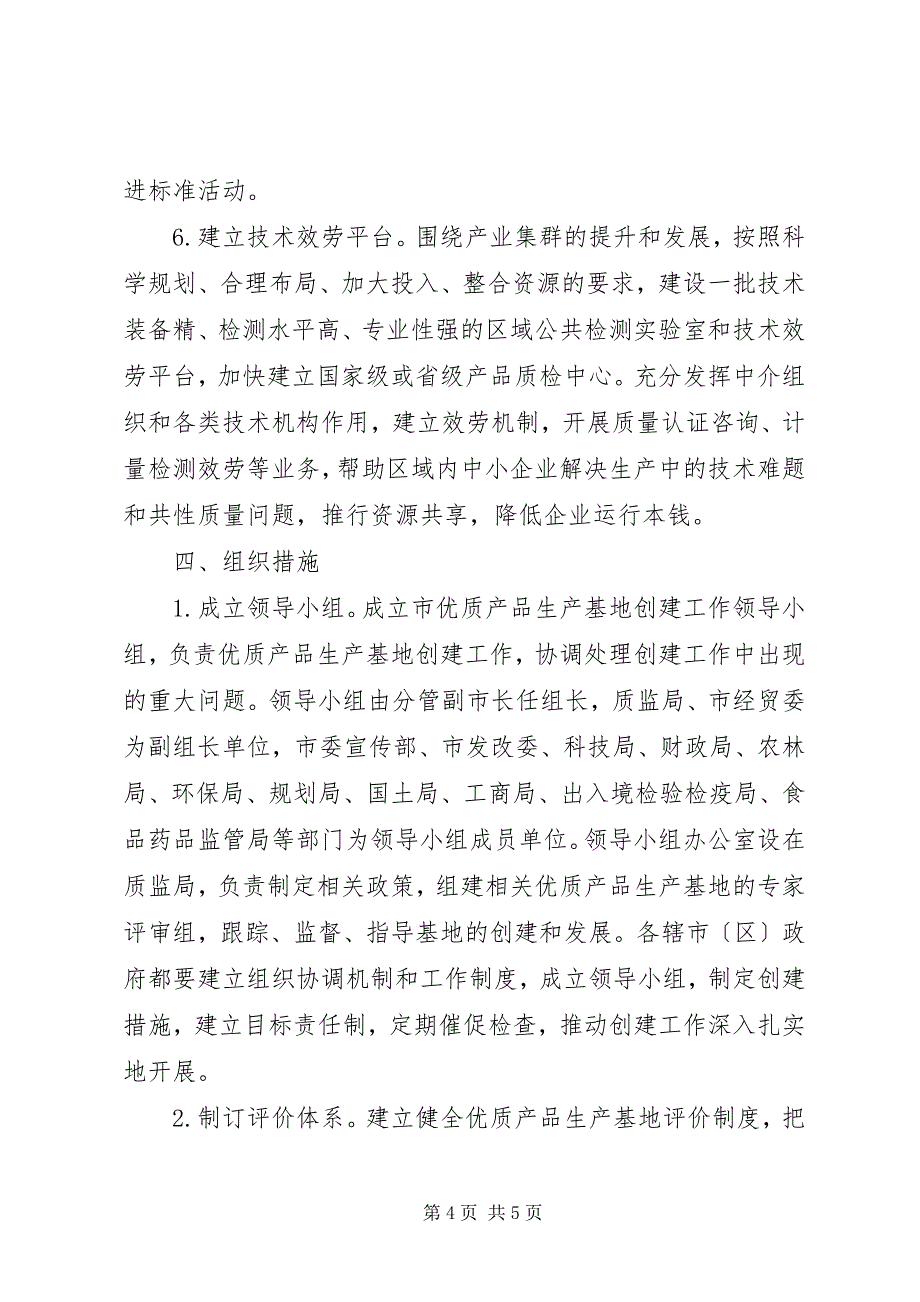 进标准活动。
6. 建立技术效劳平台。围绕产业集群的提升和发展，按照科
学规划、合理布局、加大投入、整合资源的要求，建设一批技术
装备精、检测水平高、专业性强的区域公共检测实验室和技术效
劳平台，加快建立国家级或省级产品质检中心。充分发挥中介组
织和各类技术机构作用，建立效劳机制，开展质量认证咨询、计
量检测效劳等业务，帮助区域内中小企业解决生产中的技术难题
和共性质量问题，推行资源共享，降低企业运行本钱。
四、组织措施
1. 成立领导小组。成立市优质产品生产基地创建工作领导小
组，负责优质产品生产基地创建工作，协调处理创建工作中出现
的重大问题。领导小组由分管副市长任组长，质监局、市经贸委
为副组长单位，市委宣传部、市发改委、科技局、财政局、农林
局、环保局、规划局、国土局、工商局、出入境检验检疫局、食
品药品监管局等部门为领导小组成员单位。领导小组办公室设在
质监局，负责制定相关政策，组建相关优质产品生产基地的专家
评审组，跟踪、监督、指导基地的创建和发展。各辖市〔区〕政
府都要建立组织协调机制和工作制度，成立领导小组，制定创建
措施，建立目标责任制，定期催促检查，推动创建工作深入扎实
地开展。
2. 制订评价体系。建立健全优质产品生产基地评价制度，把
第 4 页 共 5 页